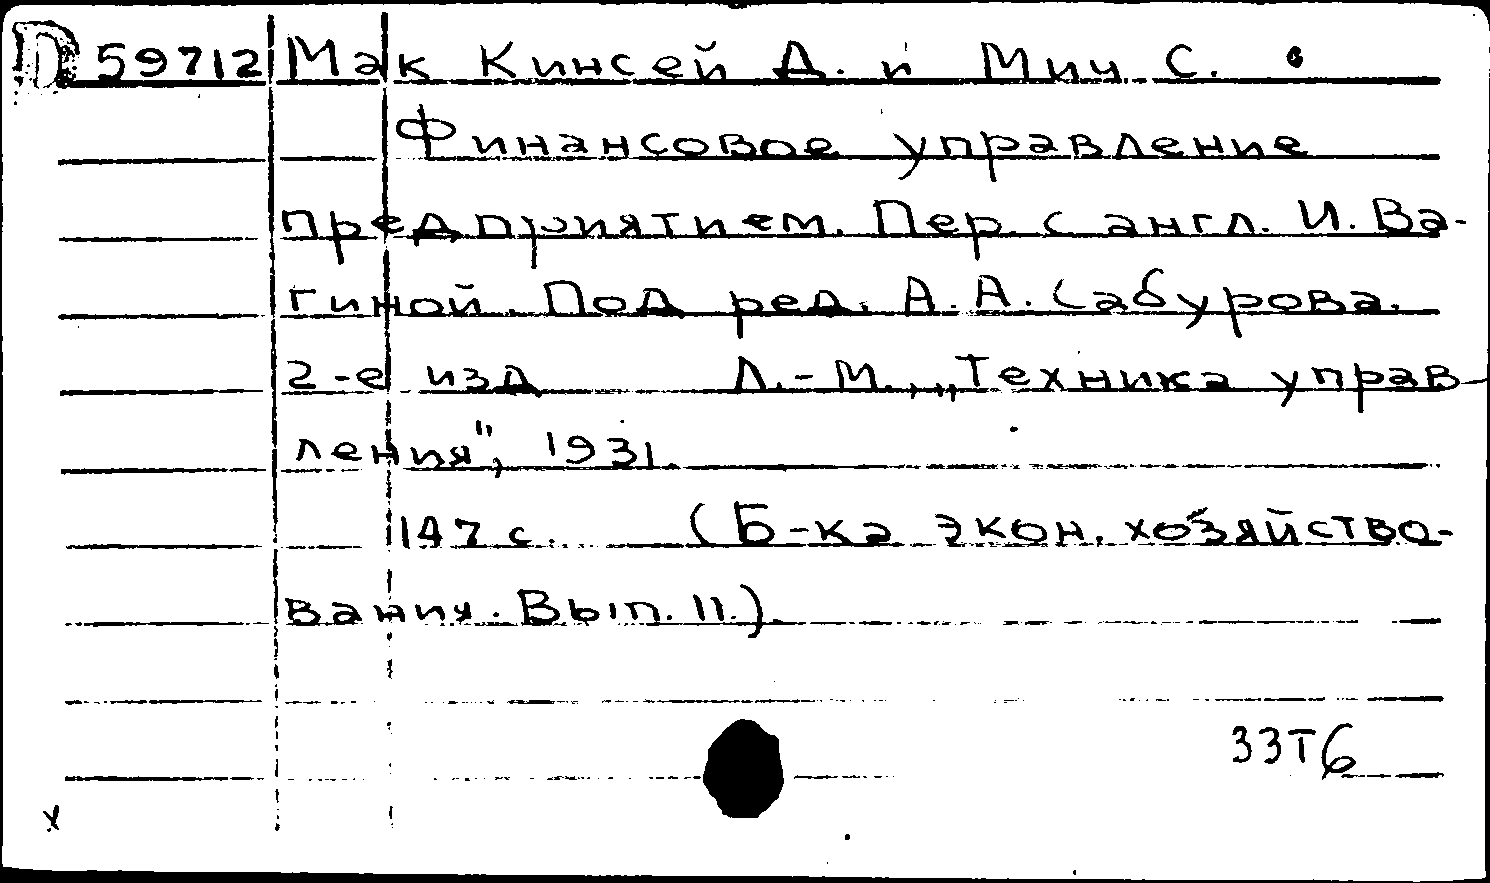 D 59712 Мак Кинсей Д. и Мич С.
Финансовое управление
предприятием. Пер. с англ. И. Ва-
гиной. Под ред. А. А. Сабурова.
2-е изд Л.-М., „Техника управ-
ления", 1931.
147 с. (Б-ка экон. хозяйство-
вания. Вып. 11.).
33Т6
х